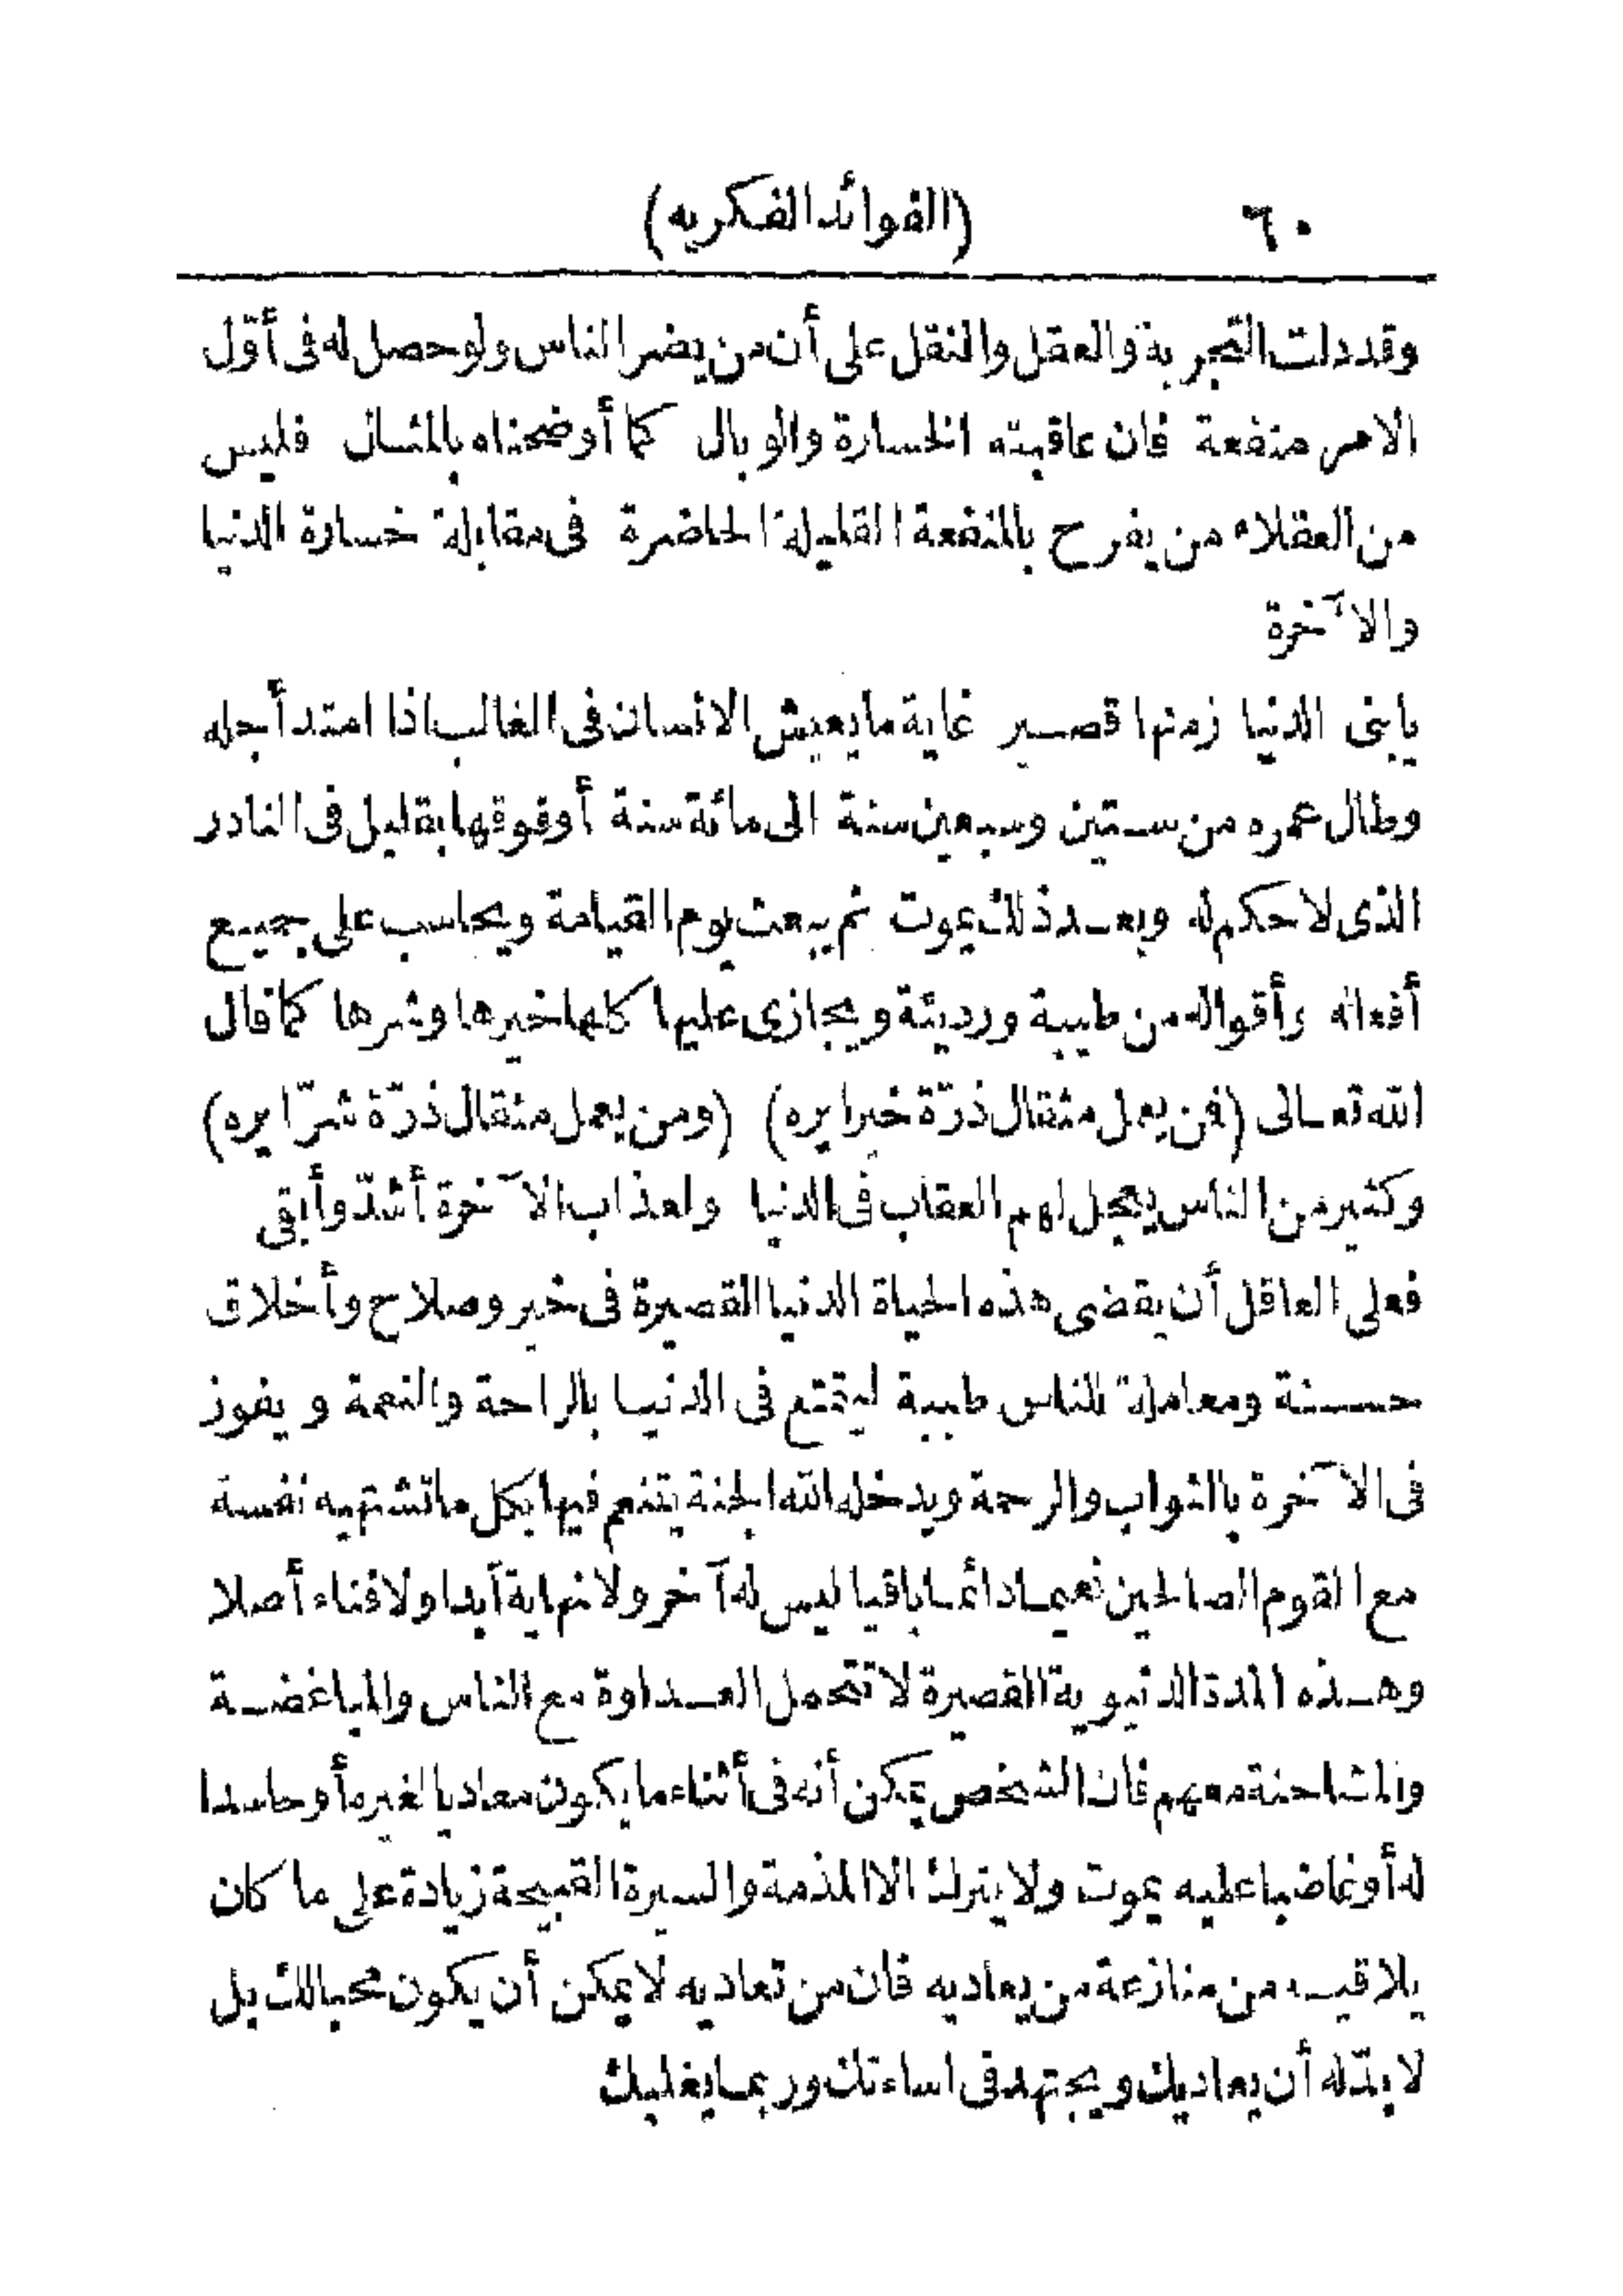 ٦٠ (الفوائد الفكريه)
وقد دلت التجربة والعقل والنقل على أن من يضر الناس ولو حصل له فى أوّل
الامر منفعة فان عاقبته الخسارة والوبال كما أوضحناه بالمثال فليس
من العقلاء من يفرح بالمنفعة القليلة الحاضرة فى مقابلة خسارة الدنيا
والآخرة
يابنى الدنيا زمنها قصير غاية ما يعيش الانسان فى الغالب اذا امتد أجله
وطال عمره من ستين وسبعين سنة الى مائة سنة أوفوقها بقليل فى النادر
الذى لا حكم له وبعد ذلك يموت ثم يبعث يوم القيامة ويحاسب على جميع
أفعاله وأقواله من طيبة ورديئة ويجازى عليها كلها خيرها وشرها كما قال
الله تعالى (فمن يعمل مثقال ذرّة خيرا يره) (ومن يعمل مثقال ذرّة شرّا يره)
وكثير من الناس يعجل لهم العقاب فى الدنيا ولعذاب الآخرة أشدّ وأبقى
فعلى العاقل أن يقضى هذه الحياة الدنيا القصيرة فى خير وصلاح وأخلاق
حسنة ومعاملة للناس طيبة ليتمتع فى الدنيا بالراحة والنعمة ويفوز
فى الآخرة بالثواب والرحمة ويدخله الله الجنة يتنعم فيها بكل ما تشتهيه نفسه
مع القوم الصالحين نعيما دائما باقيا ليس له آخر ولا نهاية أبدا ولا فناء أصلا
وهذه المدة الدنيوية القصيرة لا تتحمل العداوة مع الناس والمباغضة
والمشاحنة معهم فان الشخص يمكن أنه فى أثناء ما يكون معاديا لغيره أو حاسدا
له أو غاضبا عليه يموت ولا يترك الا المذمة والسيرة القبيحة زيادة على ما كان
يلاقيه من منازعة من يعاديه فان من تعاديه لا يمكن أن يكون محبا لك بل
لا بدّ له أن يعاديك ويجتهد فى اساءتك وربما يغلبك